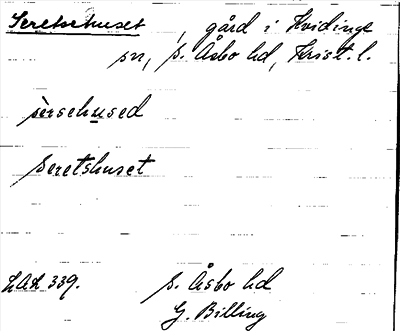 Seretsehuset, gård i Hvidinge
sn, s. Åsbo hd, Krist. l.
sèrsehused
Seretshuset
LAL 339. s. Åsbo hd
G. Billing